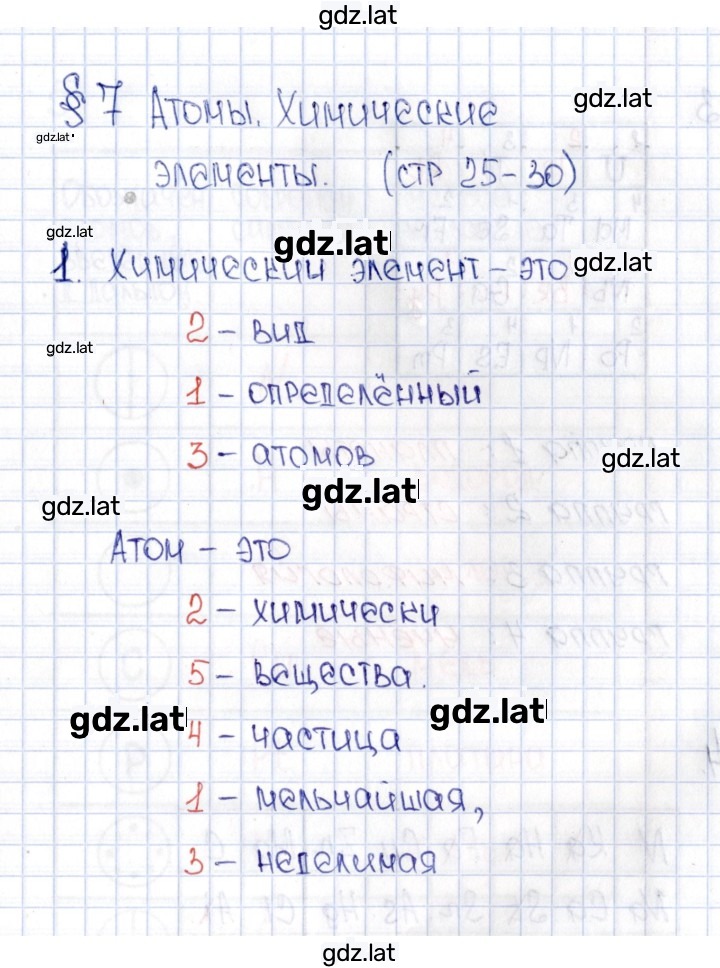 gdz.lat
§ 7 Атомы. Химические
gdz.lat
gdz.lat
элементы. (стр 25-30)
gdz.lat
gdz.lat
1. Химический элемент - это
gdz.lat
2 - вид
gdz.lat
1 - определённый
3 - атомов
gdz.lat
gdz.lat
gdz.lat
Атом - это
2 - химически
5 - вещества.
gdz.lat
gdz.lat
4 - частица
1 - мельчайшая,
3 - неделимая
gdz.lat